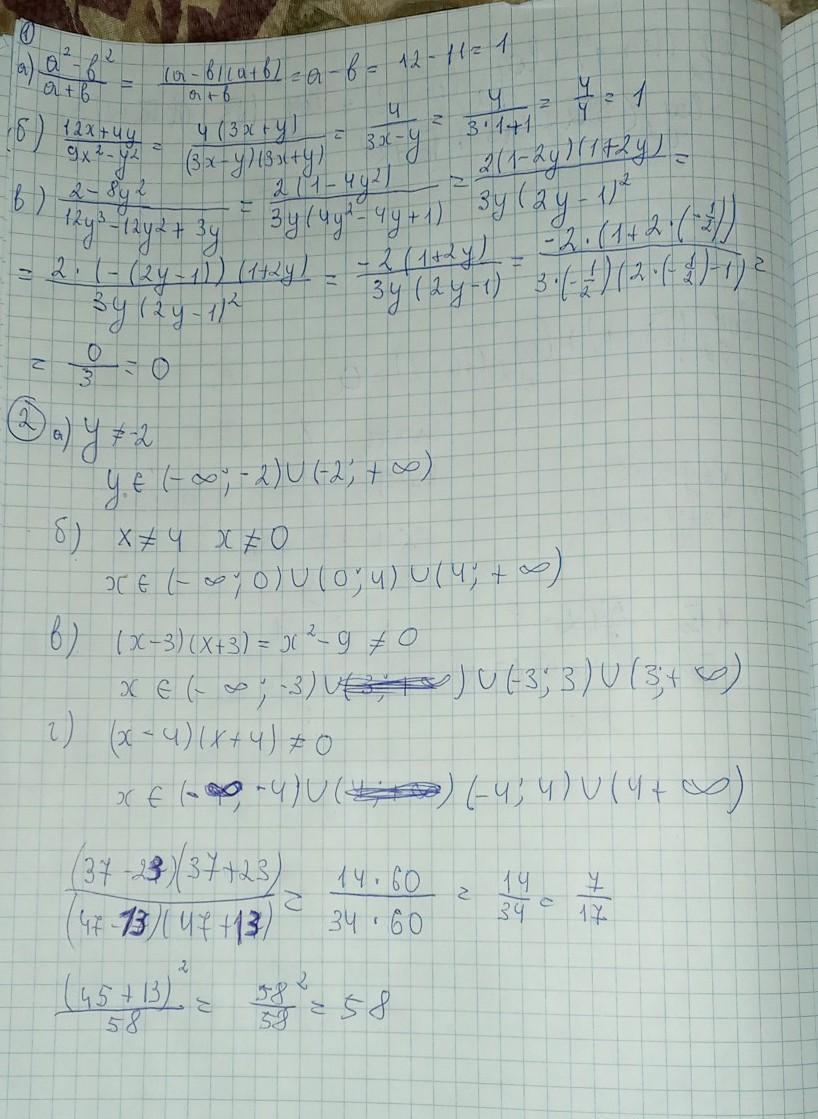 ①
а) (a² - b²)/(a + b) = ((a - b)(a + b))/(a + b) = a - b = 12 - 11 = 1
б) (12x + 4y)/(9x² - y²) = (4(3x + y))/((3x - y)(3x + y)) = 4/(3x - y) = 4/(3·1+1) = 4/4 = 1
в) (2 - 8y²)/(12y³ - 12y² + 3y) = (2(1 - 4y²))/(3y(4y² - 4y + 1)) = (2(1 - 2y)(1 + 2y))/(3y(2y - 1)²) =
= (2·(-(2y - 1))(1 + 2y))/(3y(2y - 1)²) = (-2(1 + 2y))/(3y(2y - 1)) = (-2·(1 + 2·(-1/2)))/(3·(-1/2)(2·(-1/2) - 1)) =
= 0/3 = 0
② а) y ≠ -2
y ∈ (-∞; -2)∪(-2; +∞)
б) x ≠ 4 x ≠ 0
x ∈ (-∞; 0)∪(0; 4)∪(4; +∞)
в) (x - 3)(x + 3) = x² - 9 ≠ 0
x ∈ (-∞; -3)∪ ) ∪(-3; 3)∪(3; +∞)
г) (x - 4)(x + 4) ≠ 0
x ∈ (-∞; -4)∪( ) (-4; 4)∪(4 + ∞)
((37 - 23)(37 + 23))/((47 - 13)(47 + 13)) = (14·60)/(34·60) = 14/34 = 7/17
(45 + 13)²/58 = 58²/58 = 58